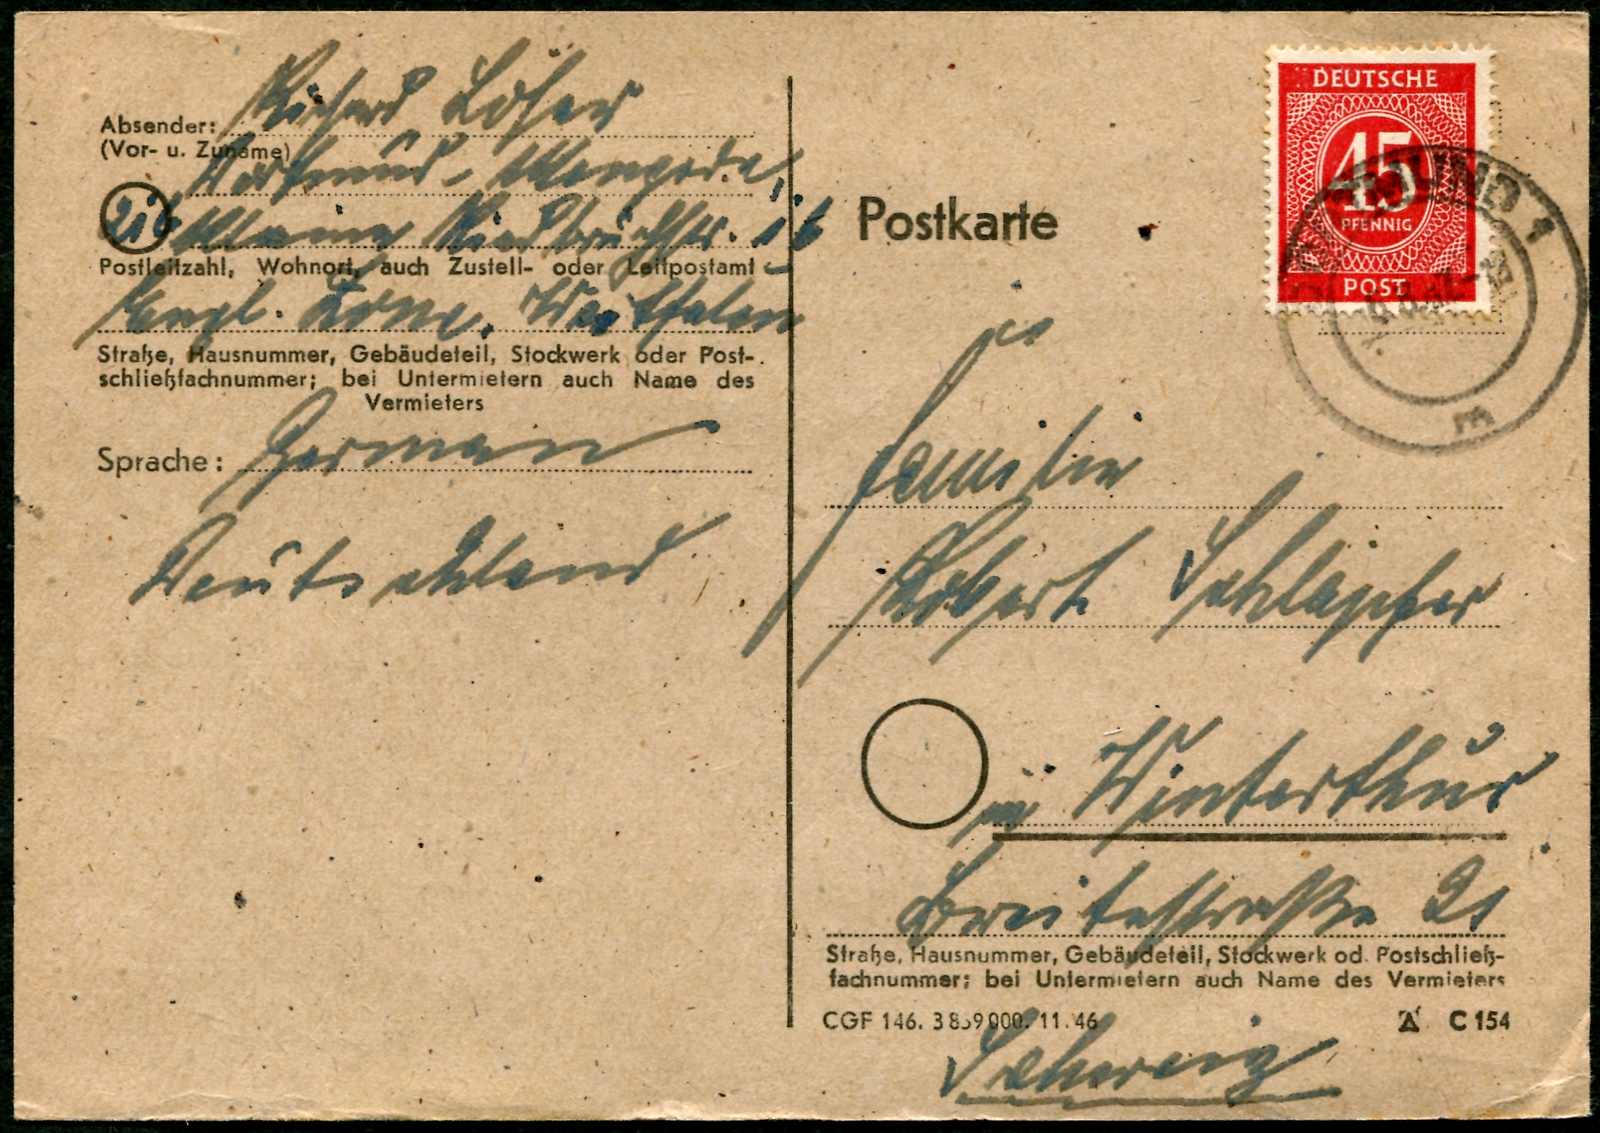 Absender: Richard Löser
(Vor- u. Zuname)
Dortmund-Mengede,
21b Kleine Riedbruchstr. 16
Postleitzahl, Wohnort, auch Zustell- oder Leitpostamt
Engl. Zone, Westfalen
Straße, Hausnummer, Gebäudeteil, Stockwerk oder Post-
schließfachnummer; bei Untermietern auch Name des
Vermieters
Sprache: German
Deutschland
Postkarte
DEUTSCHE
45
PFENNIG
POST
DORTMUND 1
m
Familie
Robert Schläpfer
in Winterthur
Breitestraße 21
Straße, Hausnummer, Gebäudeteil, Stockwerk od. Postschließ-
fachnummer; bei Untermietern auch Name des Vermieters
CGF 146. 3 859 000. 11. 46 C 154
Schweiz